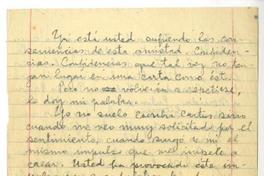 Ya está usted sufriendo las con-
secuencias de esta amistad. Confiden-
cias. Confidencias que tal vez no ten-
gan lugar en una carta como ésta.
Pero no se volverán a repetir,
le doy mi palabra.
Yo no suelo escribir cartas sino
cuando me veo muy solicitado por el
sentimiento, cuando surge en mí el
mismo impulso que me impele a
crear. Usted ha provocado este im-